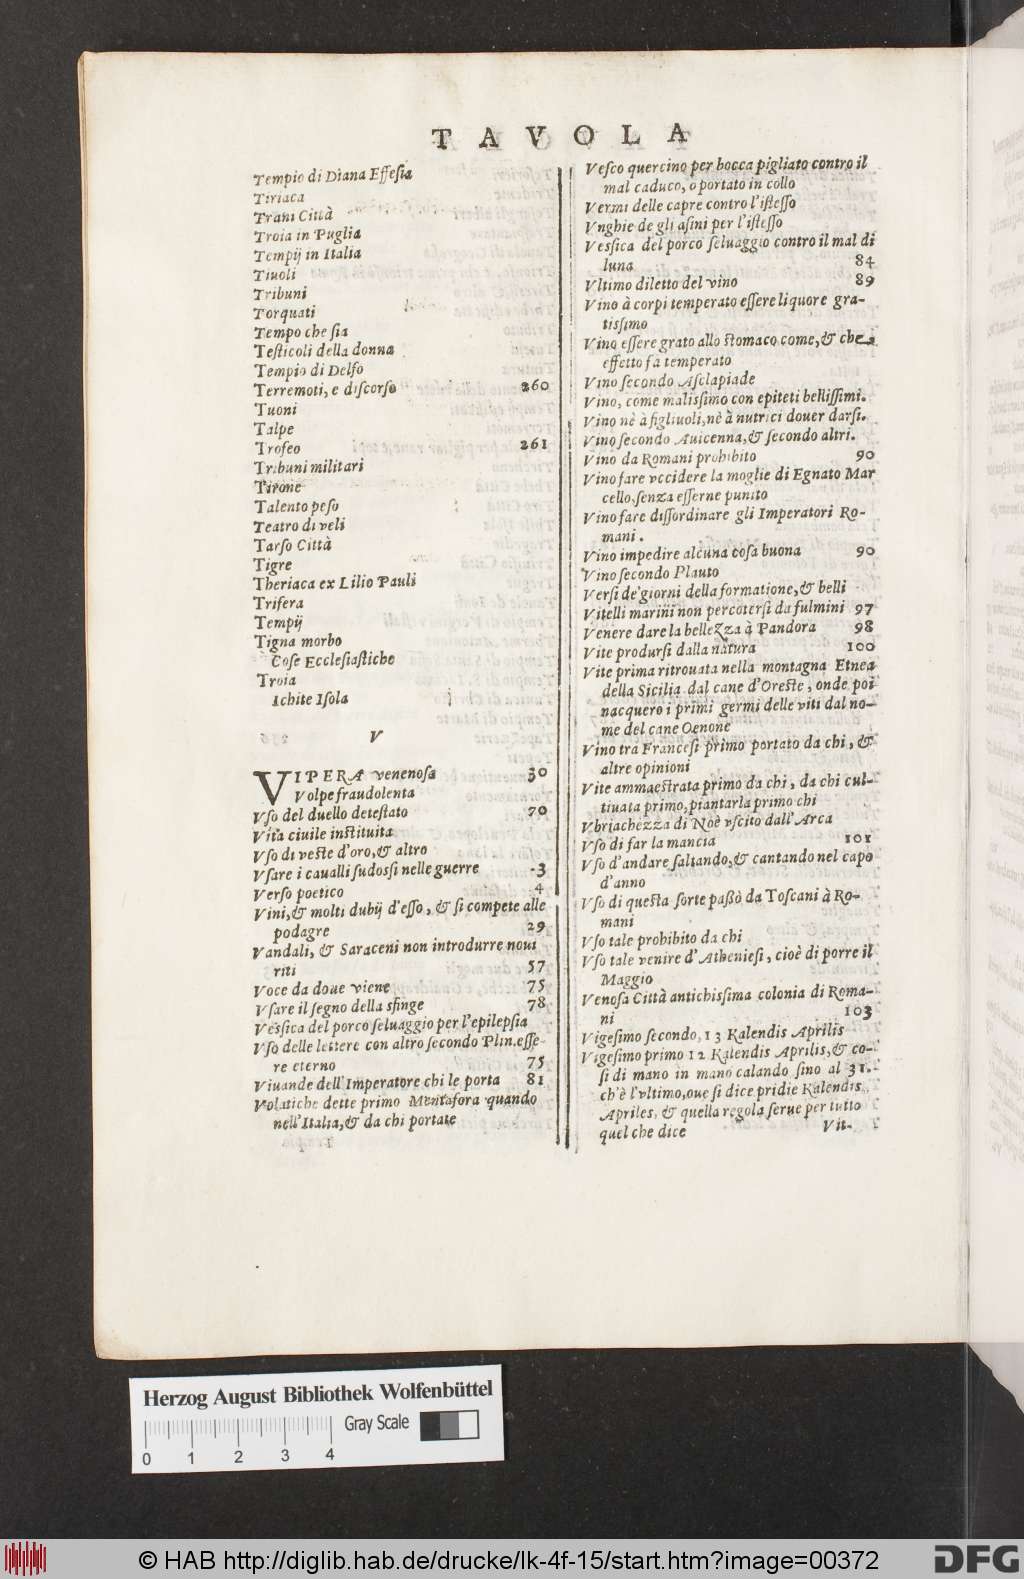 TAVOLA
Tempio di Diana Effesia
Tiriaca
Trani Città
Troia in Puglia
Tempij in Italia
Tiuoli
Tribuni
Torquati
Tempo che sia
Testicoli della donna
Tempio di Delfo
Terremoti, e discorso 260
Tuoni
Talpe
Trofeo 261
Tribuni militari
Tirone
Talento peso
Teatro di veli
Tarso Città
Tigre
Theriaca ex Lilio Pauli
Trifera
Tempij
Tigna morbo
Cose Ecclesiastiche
Troia
Ichite Isola
V
VIPERA venenosa 30
Volpe fraudolenta
Vso del duello detestato 70
Vita ciuile instituita
Vso di veste d'oro, & altro
Vsare i caualli sudossi nelle guerre 3
Verso poetico 4
Vini, & molti dubij d'esso, & si compete alle
podagre 29
Vandali, & Saraceni non introdurre noui
riti 57
Voce da doue viene 75
Vsare il segno della sfinge 78
Vessica del porco seluaggio per l'epilepsia
Vso delle lettere con altro secondo Plin. esse-
re eterno 75
Viuande dell'Imperatore chi le porta 81
Volatiche dette primo Mentafora quando
nell'Italia, & da chi portate
Vesco quercino per bocca pigliato contro il
mal caduco, o portato in collo
Vermi delle capre contro l'istesso
Vnghie de gli asini per l'istesso
Vessica del porco seluaggio contro il mal di
luna 84
Vltimo diletto del vino 89
Vino à corpi temperato essere liquore gra-
tissimo
Vino essere grato allo stomaco come, & che
effetto fa temperato
Vino secondo Asclapiade
Vino, come malissimo con epiteti bellissimi.
Vino nè à figliuoli, nè à nutrici douer darsi.
Vino secondo Auicenna, & secondo altri.
Vino da Romani prohibito 90
Vino fare vccidere la moglie di Egnato Mar
cello, senza esserne punito
Vino fare dissordinare gli Imperatori Ro-
mani.
Vino impedire alcuna cosa buona 90
Vino secondo Plauto
Versi de' giorni della formatione, & belli
Vitelli marini non percotersi da fulmini 97
Venere dare la bellezza à Pandora 98
Vite prodursi dalla natura 100
Vite prima ritrouata nella montagna Etnea
della Sicilia dal cane d'Oreste, onde poi
nacquero i primi germi delle viti dal no-
me del cane Oenone
Vino tra Francesi primo portato da chi, &
altre opinioni
Vite ammaestrata primo da chi, da chi cul-
tiuata primo, piantarla primo chi
Vbriachezza di Noè vscito dall'Arca
Vso di far la mancia 101
Vso d'andare saltando, & cantando nel capo
d'anno
Vso di questa sorte passò da Toscani à Ro-
mani
Vso tale prohibito da chi
Vso tale venire d'Atheniesi, cioè di porre il
Maggio
Venosa Città antichissima colonia di Roma-
ni 103
Vigesimo secondo, 13 Kalendis Aprilis
Vigesimo primo 12 Kalendis Aprilis, & co-
si di mano in mano calando sino al 31.
ch'è l'vltimo, oue si dice pridie Kalendis
Apriles, & quella regola serue per tutto
quel che dice Vit-
Herzog August Bibliothek Wolfenbüttel
Gray Scale
0 1 2 3 4
© HAB http://diglib.hab.de/drucke/lk-4f-15/start.htm?image=00372
DFG